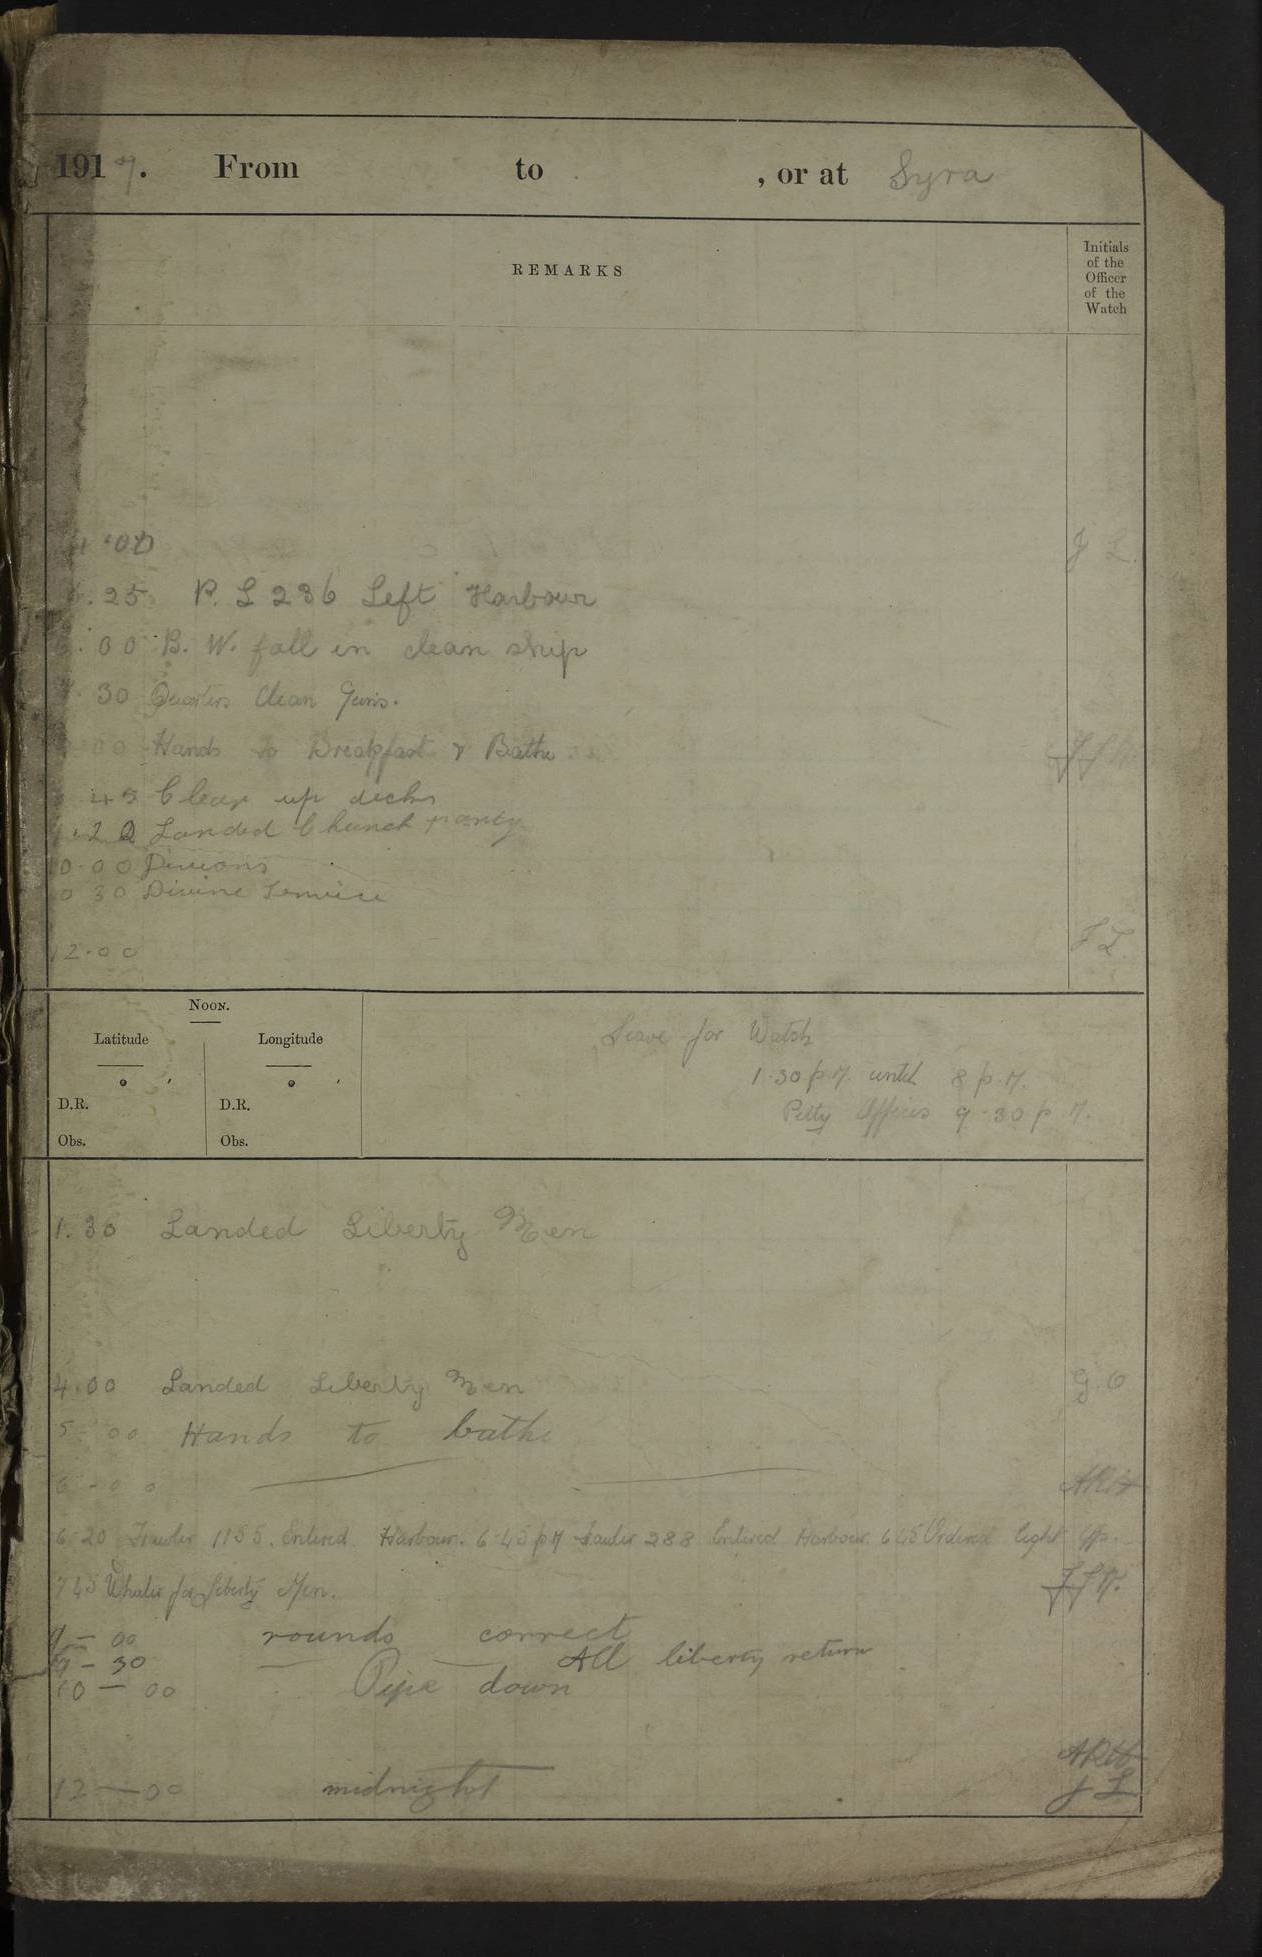 1917. From to , or at Syra
REMARKS
Initials
of the
Officer
of the
Watch
4.00 J L.
.25 P. L 236 Left Harbour
.00 B. W. fall in clean ship
30 Quarters Clean Guns.
00 Hands to Breakfast & Bathe
45 Clear up decks
.22 Landed Church party
10.00 Divisions
10 30 Divine Service
12.00 J L.
NOON.
Latitude Longitude
° ′ ° ′
D.R. D.R.
Obs. Obs.
Leave for Watch
1.30 p.M. until 8 p.M.
Petty Officers 9.30 p.M.
1.30 Landed Liberty Men
4.00 Landed Liberty Men G.O
5.00 Hands to bathe
6-00
6 20 Trawler 1155. Entered Harbour. 6.45 pM Trawler 288 Entered Harbour. 645 Ordered light up.
745 Whaler for Liberty Men.
9-00 rounds correct
9-30 All liberty return
10-00 Pipe down
12-00 midnight J L